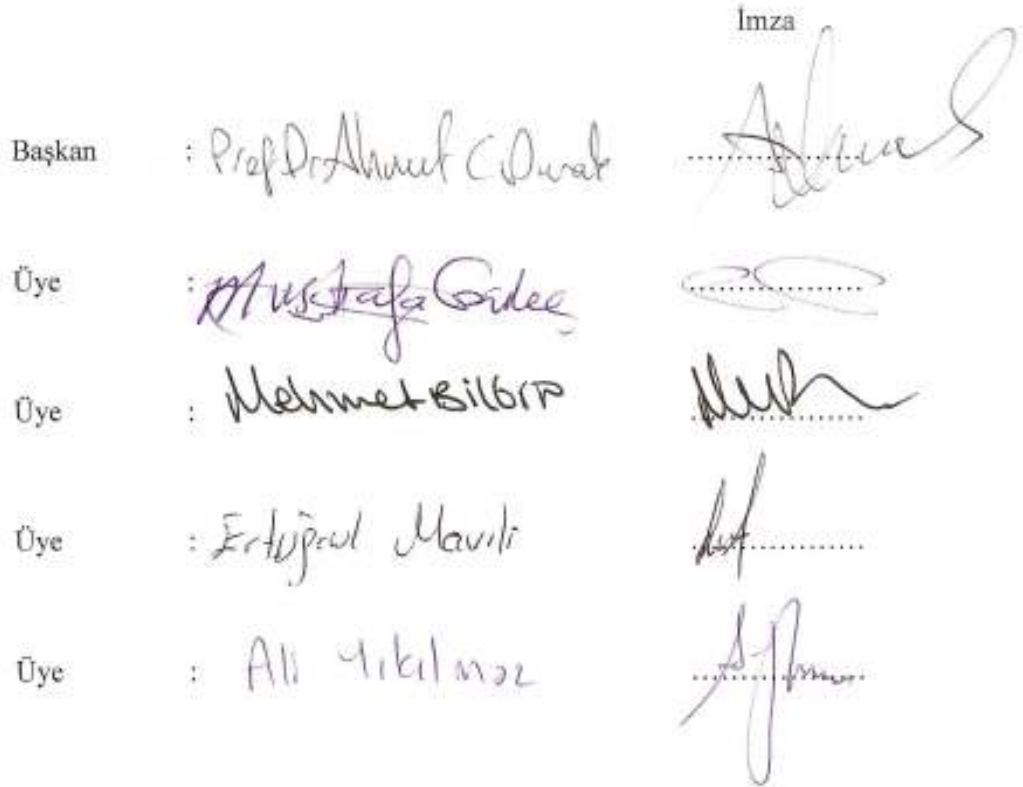 İmza
Başkan : Prof Dr Ahmet C Durak ..................
Üye : Mustafa ..................
Üye : Mehmet Bilgin ..................
Üye : Ertuğrul Mavili ..................
Üye : Ali Yıkılmaz ..................